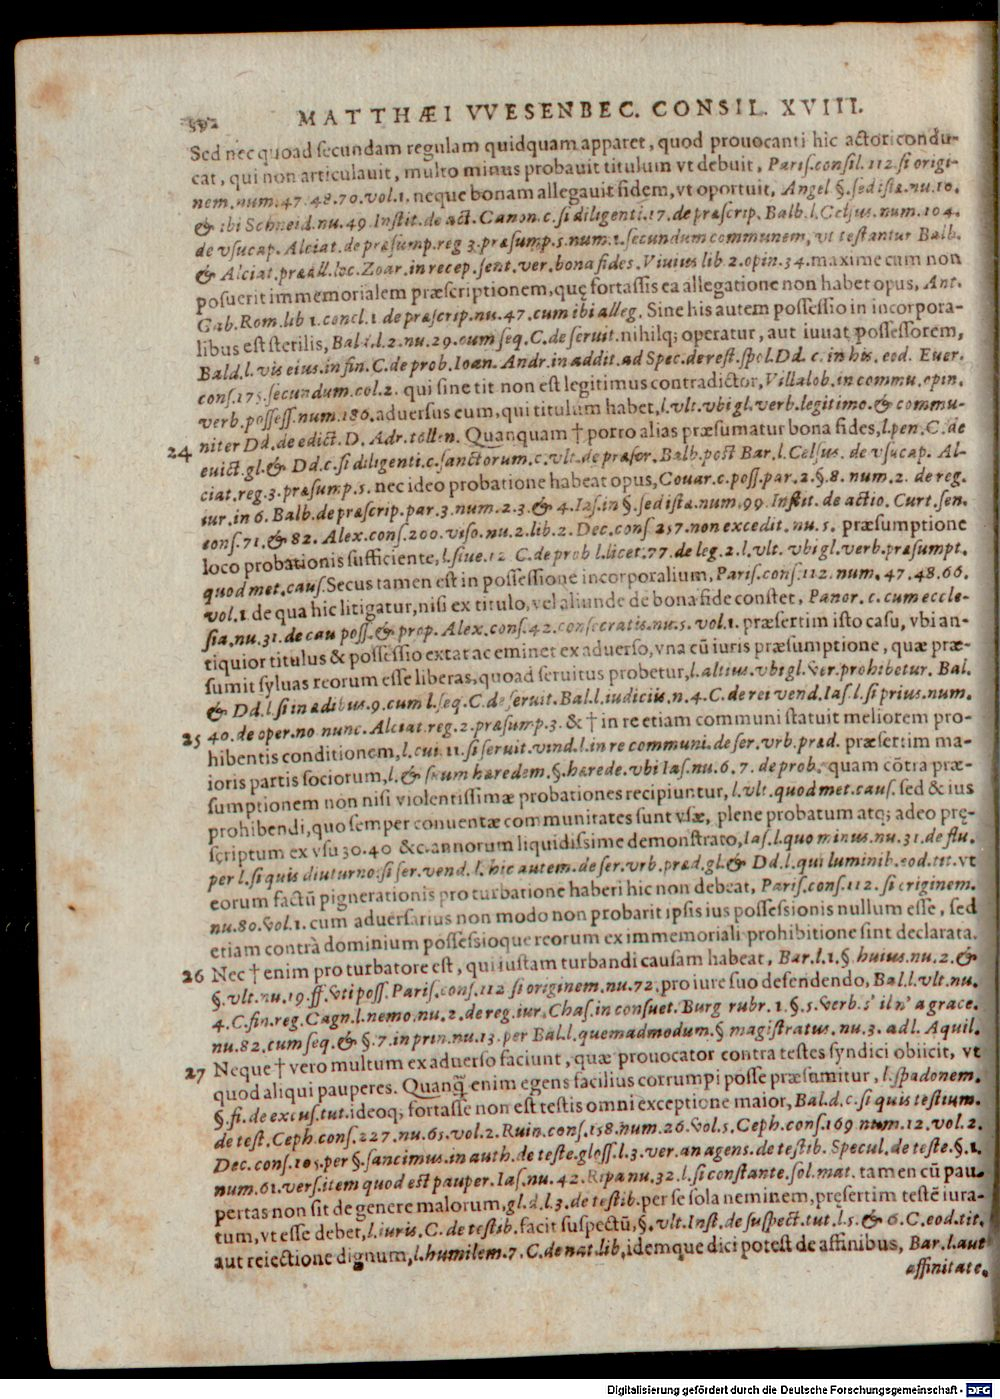 592 MATTHÆI VVESENBEC. CONSIL. XVIII.
Sed nec quoad secundam regulam quidquam apparet, quod prouocanti hic actori condu-
cat, qui non articulauit, multo minus probauit titulum vt debuit, Paris. consil. 112. si origi-
nem. num. 47. 48. 70. vol. 1. neque bonam allegauit fidem, vt oportuit, Angel §. sed ista. nu. 10.
& ibi Schneid. nu. 49. Instit. de act. Canon. c. si diligenti. 17. de præscrip. Balb. l. Celsus. num. 104.
de vsucap. Alciat. de præsump. reg 3. præsump. 5. num. 1. secundum communem, vt testantur Balb.
& Alciat. præall. loc. Zoar. in recep. sent. ver. bona fides. Viuius lib 2. opin. 34. maxime cum non
posuerit immemorialem præscriptionem, quę fortassis ea allegatione non habet opus, Ant.
Gab. Rom. lib 1. concl. 1. de præscrip. nu. 47. cum ibi alleg. Sine his autem possessio in incorpora-
libus est sterilis, Bald. l. 2. nu. 29. cum seq. C. de seruit. nihilq; operatur, aut iuuat possessorem,
Bald. l. vis eius. in fin. C. de prob. Ioan. Andr. in addit. ad Spec. de rest. spol. Dd. c. in his. eod. Euer.
cons. 175. secundum. col. 2. qui sine tit non est legitimus contradictor, Villalob. in commu. opin.
verb. possess. num. 186. aduersus eum, qui titulum habet, l. vlt. vbi gl. verb. legitimo. & commu-
niter Dd. de edict. D. Adr. tollen. Quanquam † porro alias præsumatur bona fides, l. pen. C. de
24 euict. gl. & Dd. c. si diligenti. c. sanctorum. c. vlt. de præscr. Balb. post Bar. l. Celsus. de vsucap. Al-
ciat. reg. 3. præsump. 5. nec ideo probatione habeat opus, Couar. c. poss. par. 2. §. 8. num. 2. de reg.
iur. in 6. Balb. de præscrip. par. 3. num. 2. 3. & 4. Ias. in §. sed ista. num. 99. Instit. de actio. Curt. sen.
cons. 71. & 82. Alex. cons. 200. viso. nu. 2. lib. 2. Dec. cons 257. non excedit. nu. 5. præsumptione
loco probationis sufficiente, l. siue. 12 C. de prob l. licet. 77. de leg. 2. l. vlt. vbi gl. verb. præsumpt.
quod met. caus. Secus tamen est in possessione incorporalium, Paris. cons. 112. num. 47. 48. 66.
vol. 1. de qua hic litigatur, nisi ex titulo, vel aliunde de bona fide constet, Panor. c. cum eccle-
sia. nu. 31. de cau poss. & prop. Alex. cons. 42. consecratis. nu. 5. vol. 1. præsertim isto casu, vbi an-
tiquior titulus & possessio extat ac eminet ex aduerso, vna cũ iuris præsumptione, quæ præ-
sumit syluas reorum esse liberas, quoad seruitus probetur, l. altius. vbi gl. ver. prohibetur. Bal.
& Dd. l. si in ædibus. 9. cum l. seq. C. de seruit. Bal. l. iudiciis. n. 4. C. de rei vend. Ias. l. si prius. num.
25 40. de oper. no nunc. Alciat. reg. 2. præsump. 3. & † in re etiam communi statuit meliorem pro-
hibentis conditionem, l. cui. 11. si seruit. vind. l. in re communi. de ser. vrb. præd. præsertim ma-
ioris partis sociorum, l. & si cum hæredem. §. hærede. vbi Ias. nu. 6. 7. de prob. quam cõtra præ-
sumptionem non nisi violentissimæ probationes recipiuntur, l. vlt. quod met. caus. sed & ius
prohibendi, quo semper conuentæ communitates sunt vsæ, plene probatum atq; adeo prę-
scriptum ex vsu 30. 40 &c. annorum liquidissime demonstrato, Ias. l. quo minus. nu. 31. de flu.
per l. si quis diuturno. si ser. vend. l. hic autem. de ser. vrb. præd. gl. & Dd. l. qui luminib. eod. tit. vt
eorum factũ pignerationis pro turbatione haberi hic non debeat, Paris. cons. 112. si originem.
nu. 80. vol. 1. cum aduersarius non modo non probarit ipsis ius possessionis nullum esse, sed
etiam contrà dominium possessioque reorum ex immemoriali prohibitione sint declarata.
26 Nec † enim pro turbatore est, qui iustam turbandi causam habeat, Bar. l. 1. §. huius. nu. 2. &
§. vlt. nu. 19. ff. vti poss. Paris. cons. 112 si originem. nu. 72. pro iure suo defendendo, Bal. l. vlt. nu.
4. C. fin. reg. Cagn. l. nemo. nu. 2. de reg. iur. Chas. in consuet. Burg rubr. 1. §. 5. verb. s' il n' a grace.
nu. 82. cum seq. & §. 7. in prin. nu. 13. per Bal. l. quemadmodum. § magistratus. nu. 3. ad l. Aquil.
27 Neque † vero multum ex aduerso faciunt, quæ prouocator contra testes syndici obiicit, vt
quod aliqui pauperes. Quanq̃ enim egens facilius corrumpi posse præsumitur, l. spadonem.
§. fi. de excus. tut. ideoq; fortasse non est testis omni exceptione maior, Bal. d. c. si quis testium.
de test. Ceph. cons. 227. nu. 65. vol. 2. Ruin. cons. 158. num. 26. vol. 5. Ceph. cons. 169 num. 12. vol. 2.
Dec. cons. 105. per §. sancimus. in auth. de teste. gloss. l. 3. ver. an agens. de testib. Specul. de teste. §. 1.
num. 61. vers. item quod est pauper. Ias. nu. 42. Ripa nu. 32. l. si constante. sol. mat. tamen cũ pau-
pertas non sit de genere malorum, gl. d. l. 3. de testib. per se sola neminem, pręsertim testẽ iura-
tum, vt esse debet, l. iuris. C. de testib. facit suspectũ, §. vlt. Inst. de suspect. tut. l. 5. & 6. C. eod. tit.
aut reiectione dignum, l. humilem. 7. C. de nat. lib, idemque dici potest de affinibus, Bar. l. aut
affinitate.
Digitalisierung gefördert durch die Deutsche Forschungsgemeinschaft - DFG